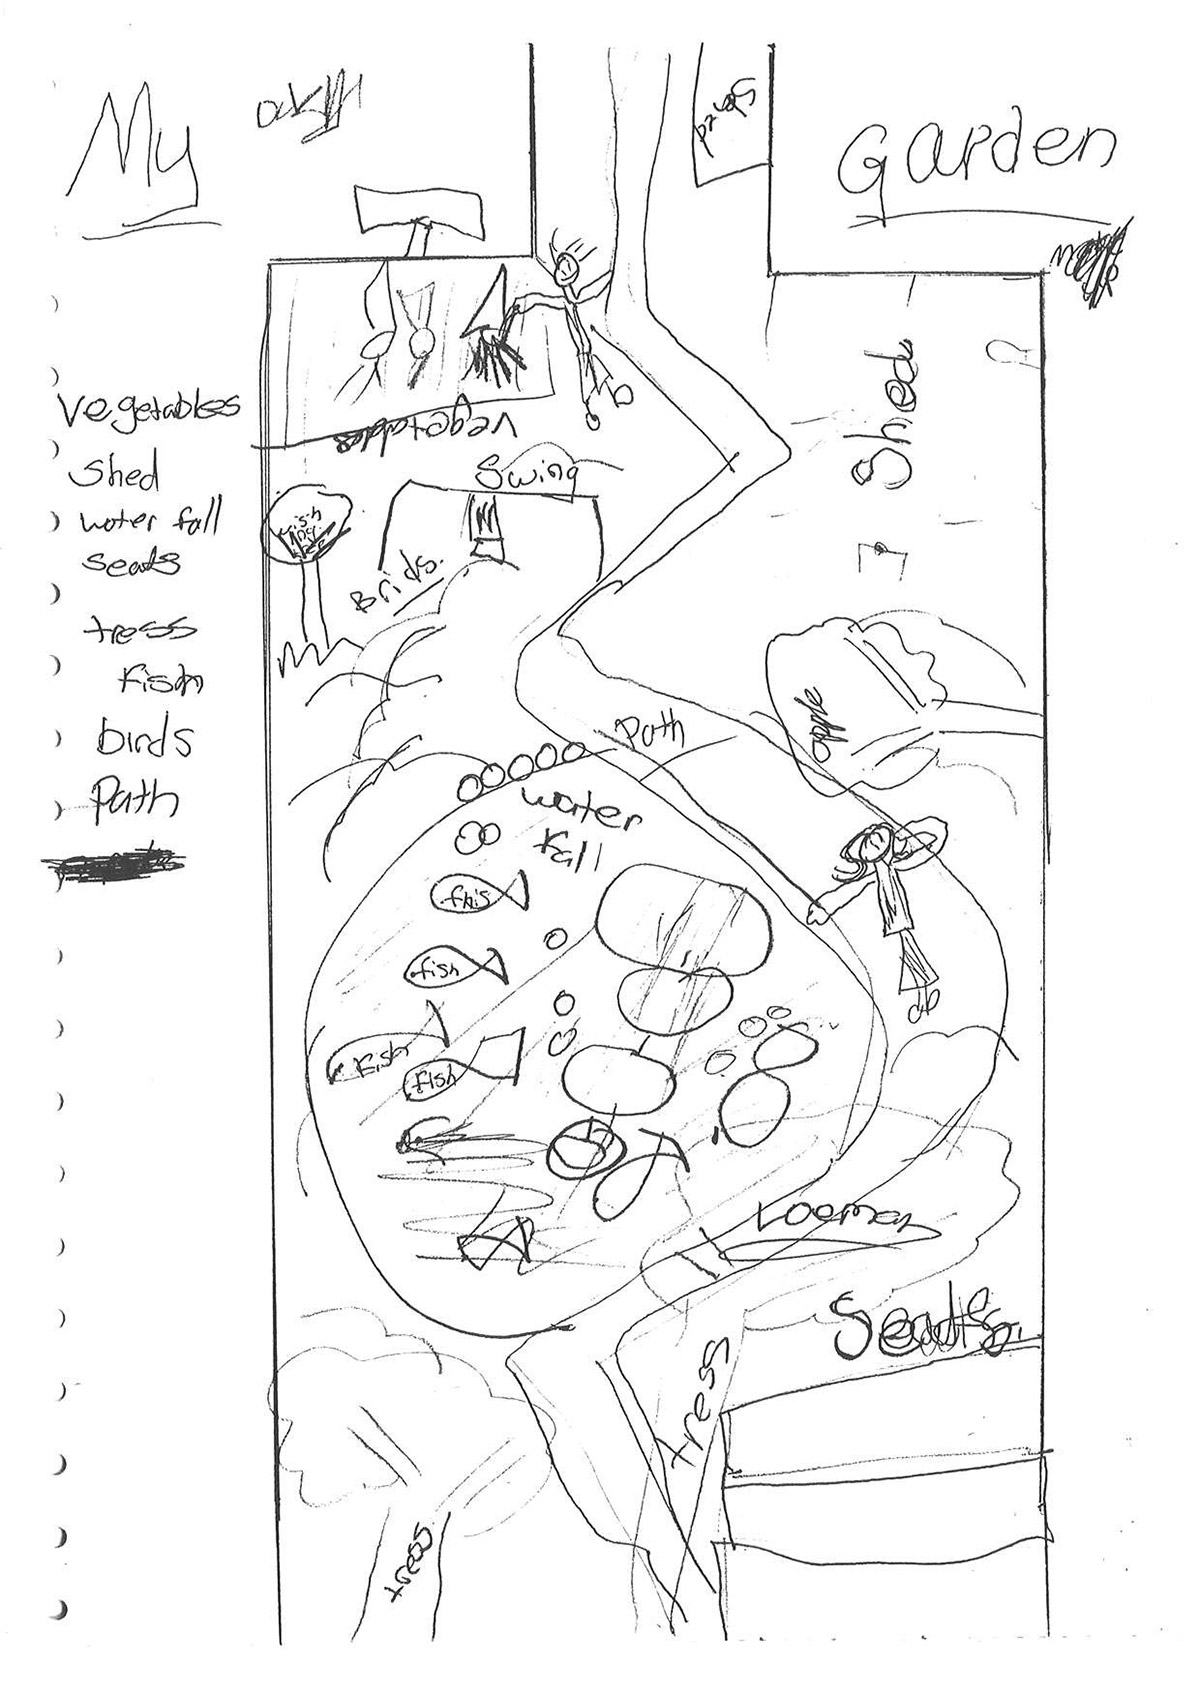 My
Garden
Shed
vegetables
Shed
water fall
seats
tress
Fish
birds
Path
vegetables
Swing
Shed
Brids.
apple
Path
water
Fall
fhis
fish
Fish
fish
Seats
tress
tress